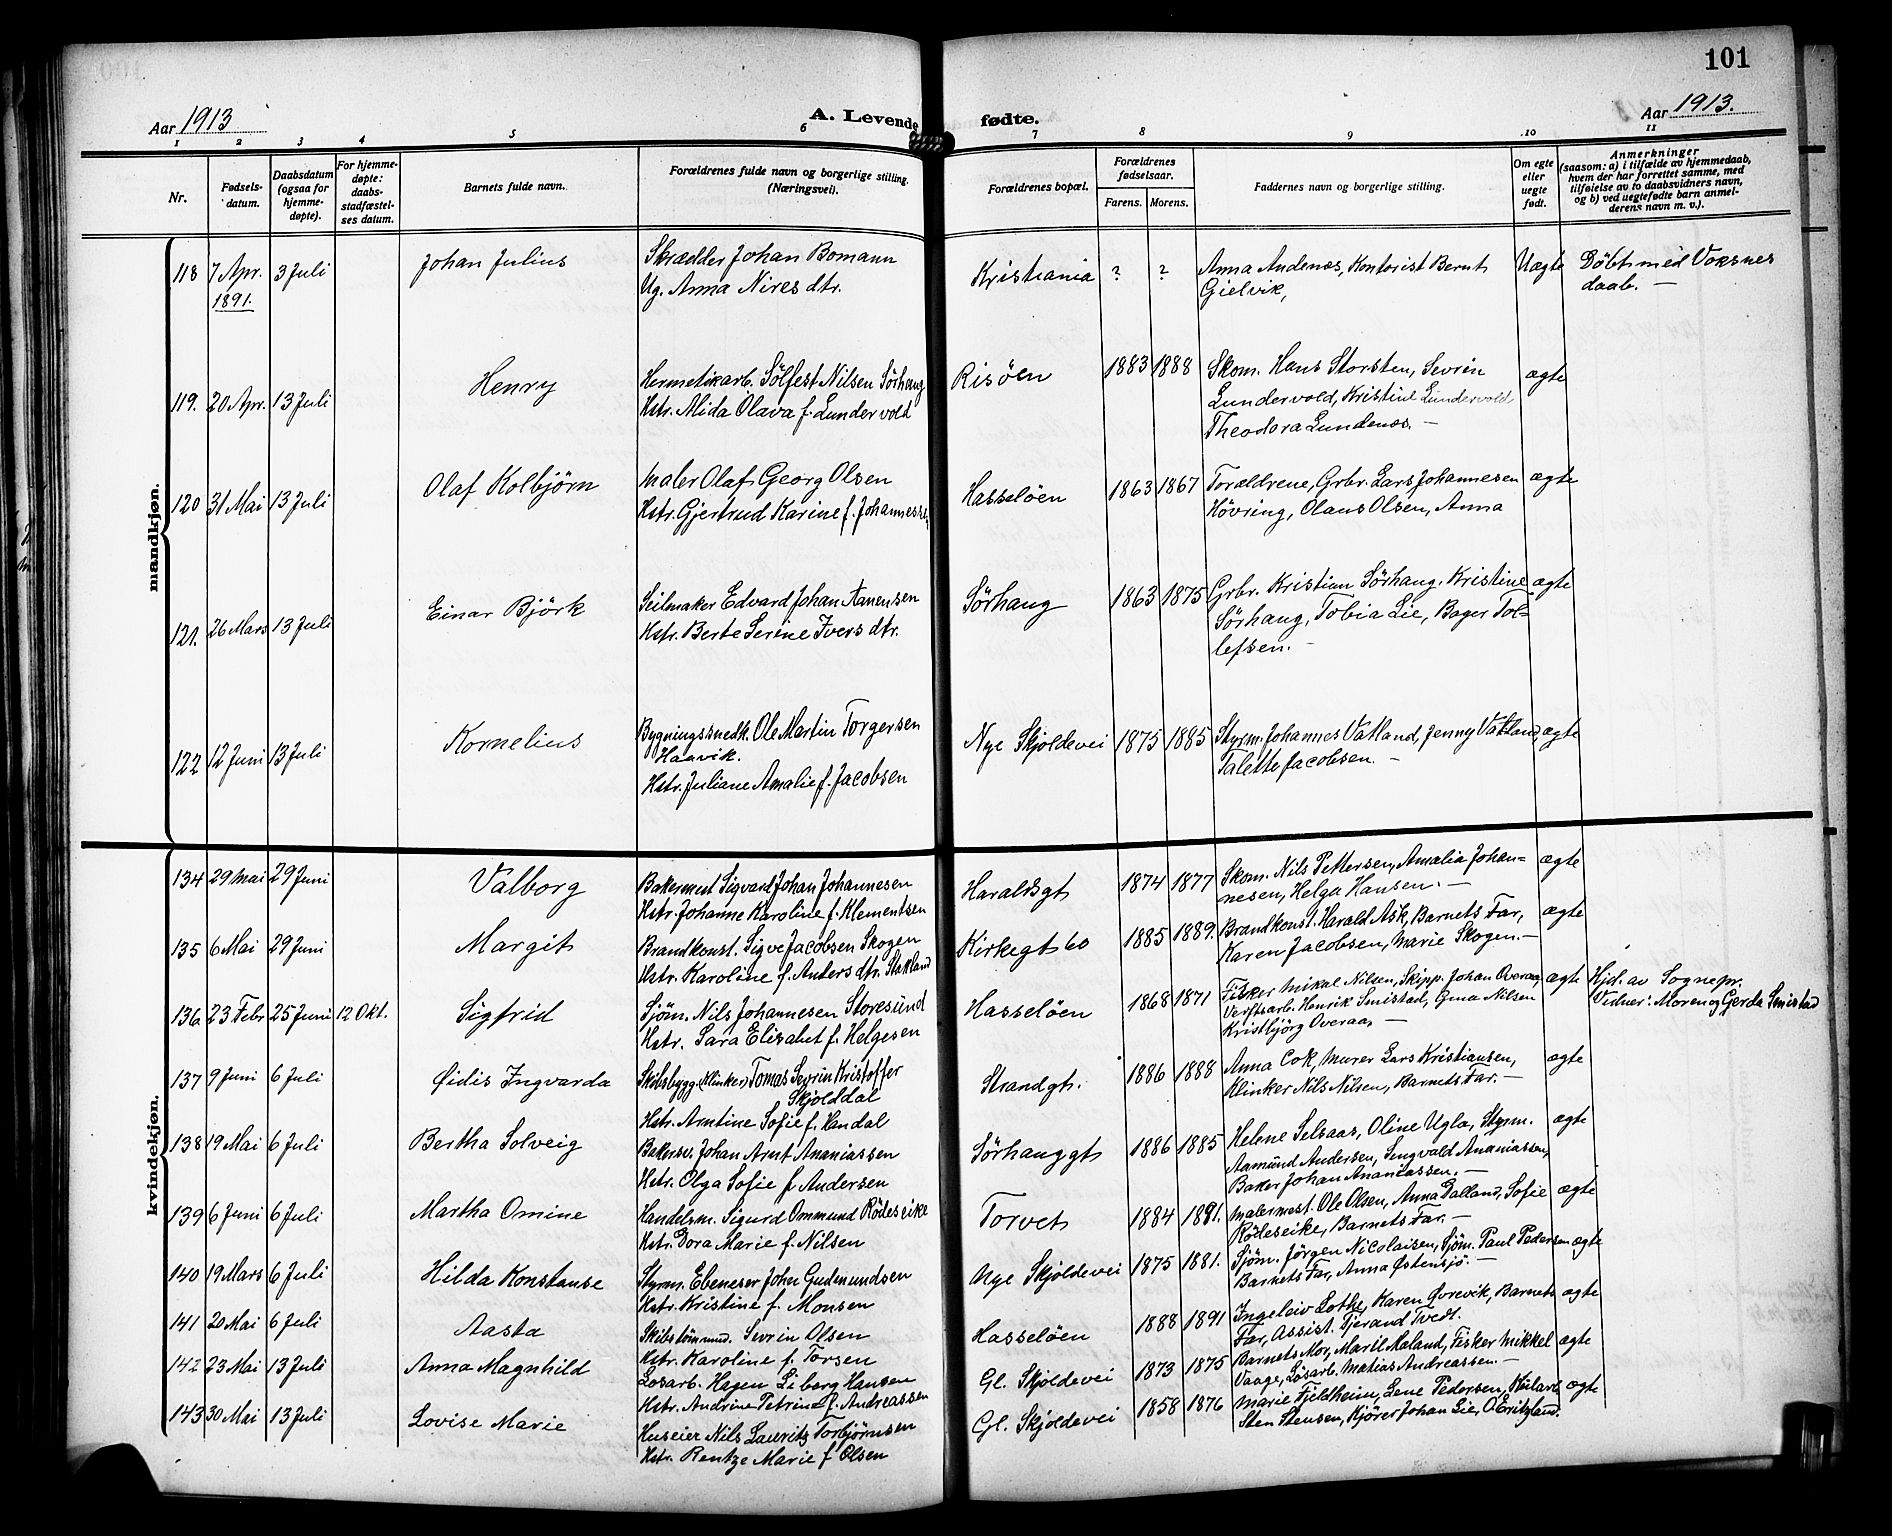 101
Aar 1913
A. Levende fødte.
Aar 1913.
1 2 3 4 5 6 7 8 9 10 11
Nr.
Fødsels-
datum.
Daabsdatum
(ogsaa for
hjemme-
døpte).
For hjemme-
døpte:
daabs-
stadfæstel-
ses datum.
Barnets fulde navn.
Forældrenes fulde navn og borgerlige stilling.
(Næringsvei).
Forældrenes bopæl.
Forældrenes
fødselsaar.
Farens. Morens.
Faddernes navn og borgerlige stilling.
Om egte
eller
uegte
født.
Anmerkninger
(saasom: a) i tilfælde av hjemmedaab,
hvem der har forrettet samme, med
tilføielse av to daabsvidners navn,
og b) ved uegtefødte barn anmel-
derens navn m. v.).
mandkjøn.
118 7 Apr. 3 Juli Johan Julius Skrædder Johan Bomann Kristiania ? ? Anna Andenæs, Kontorist Bernt Uægte Döbt med Voksnes
1891. Ug. Anna Nires dtr. Gielvik, daab. —
119. 20 Apr. 13 Juli Henry Hermetikarb. Sölfest Nilsen Sörhaug Risöen 1883 1888 Skom. Hans Storsten, Sevrin ægte
Hstr. Alida Olava f. Lundervold Lundervold, Kristine Lundervold,
Theodora Lundenæs. —
120 31 Mai 13 Juli Olaf Kolbjörn Maler Olaf Georg Olsen Hasselöen 1863 1867 Forældrene, Grbr. Lars Johannesen ægte
Hstr. Gjertrud Karine f. Johannessen Hövring, Olaus Olsen, Anna
121. 26 Mars 13 Juli Einar Björk Seilmaker Edvard Johan Aanensen Sörhaug 1863 1875 Grbr. Kristian Sörhaug. Kristine ægte
Hstr. Berte Serine Ivers dtr. Sörhaug, Tobia Lie, Bager Tol-
lefsen. —
122 12 Juni 13 Juli Kornelius Bygningssnedk. Ole Martin Torgersen Nye Skjoldevei 1875 1885 Styrm. Johannes Vatland, Jenny Vatland, ægte
Haavik. Talette Jacobsen. —
Hstr. Juliane Amalie f. Jacobsen
kvindekjøn.
134 29 Mai 29 Juni Valborg Bakermest Sigvard Johan Johannesen Haraldsgt 1874 1877 Skom. Nils Pettersen, Amalia Johan= ægte
Hstr. Johanne Karoline f. Klementsen nesen, Helga Hansen. —
135 6 Mai 29 Juni Margit Brandkonst. Sigve Jacobsen Skogen Kirkegt 60 1885 1889. Brandkonst. Harald Ask, Barnets Far, ægte
Hstr. Karoline f. Anders dtr. Stakland Karen Jacobsen, Marie Skogen. —
136 23 Febr 25 Juni 12 Okt. Sigfrid Sjöm. Nils Johannesen Storesund Hasselöen 1868 1871 Fisker Mikal Nilsen, Skipp. Johan Overaa, ægte Hjd. av Sognepr.
Hstr. Sara Elisabet f. Helgesen Verftsarb. Henrik Smistad, Gina Nilsen Vidner: Moren og Gerda Smistad
Kristbjörg Overaa, —
137 9 Juni 6 Juli Øidis Ingvarda Skibsbygg. (Klinker) Tomas Sevrin Kristoffer Strandgt. 1886 1888 Anna Cok, Murer Lars Kristiansen, ægte
Skjolddal Klinker Nils Nilsen, Barnets Far. —
Hstr. Arntine Sofie f. Handal
138 19 Mai 6 Juli Bertha Solveig Bakersv. Johan Arnt Ananiassen Sörhauggt 1886 1885 Helene Selsaas, Oline Ugla, Styrm. ægte
Hstr. Olga Sofie f Andersen Aamund Andersen, Sengvald Ananiassen,
Baker Johan Ananiassen. —
139 6 Juni 6 Juli Martha Omine Handelsm. Sigurd Ommund Rödeseike Torvet 1884 1891. Malermest. Ole Olsen, Anna Dalland, Sofie ægte
Hstr. Dora Marie f. Nilsen Rödeseike, Barnets Far. —
140 19 Mars 6 Juli Hilda Konstanse Styrm. Ebeneser John Gudmundsen Nye Skjoldevei 1875 1881. Sjöm. Jörgen Nicolaisen, Sjöm. Paul Pedersen ægte
Hstr. Kristine f. Monsen Barnets Far, Anna Østensjö. —
141 20 Mai 6 Juli Aasta Skibstömmd. Sevrin Olsen Hasselöen 1888 1891 Ingeleiv Lothe, Karen Øvrevik, Barnets ægte
Hstr. Karoline f. Torsen Far, Assist. Tjerand Tvedt.
142 23 Mai 13 Juli Anna Magnhild Losarb. Hagen Liberg Hansen Gl. Skjoldevei 1873 1875 Barnets Mor, Marit Maland, Fisker Mikkel ægte
Hstr. Andrine Petrine f. Andreassen Vaage, Lösarb. Matias Andreassen. —
143 30 Mai 13 Juli Lovise Marie Huseier Nils Lauritz Torbjørnsen Gl. Skjoldevei 1858 1876 Marie Fjeldheim, Lene Pedersen, ægte
Hstr. Rentze Marie f Olsen Sten Stensen, Kjörer Johan Lie,